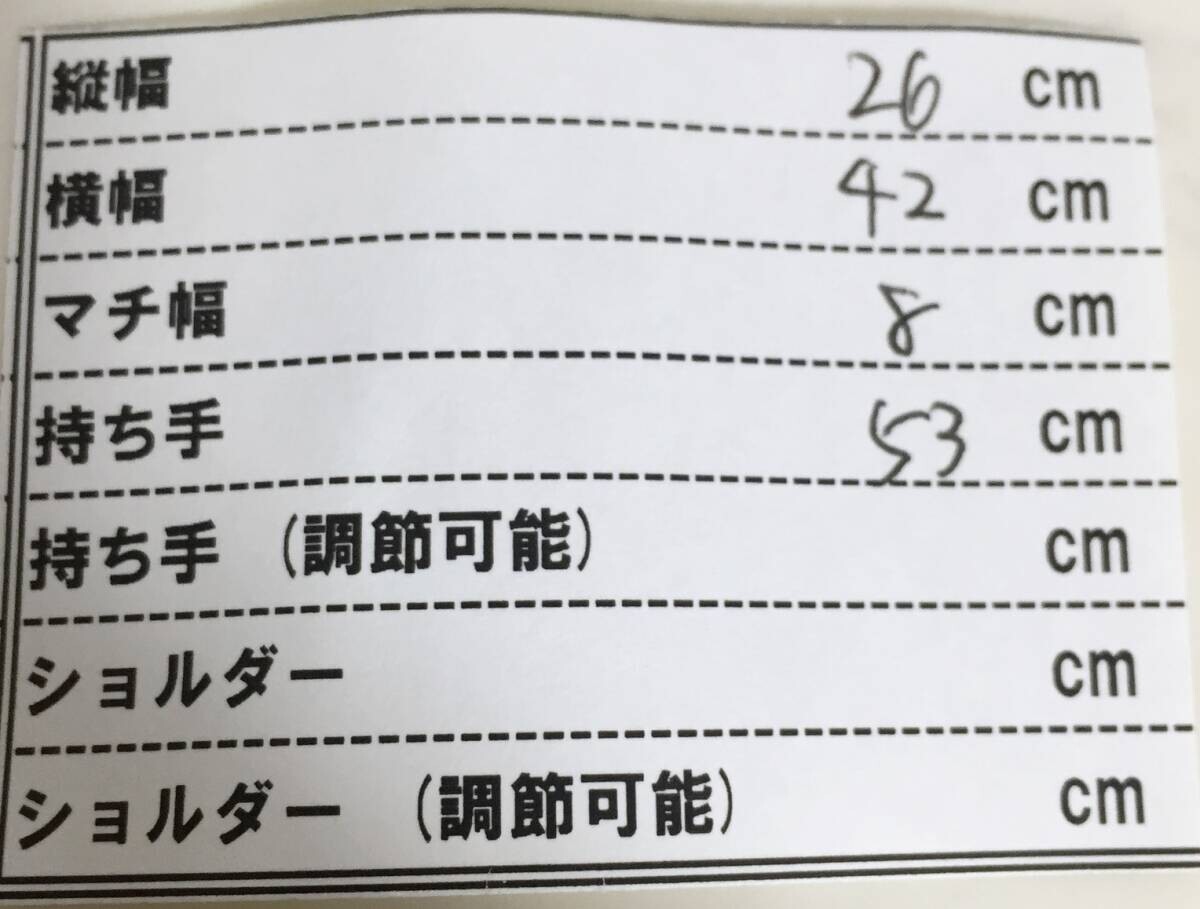 縦幅 26 cm
横幅 42 cm
マチ幅 8 cm
持ち手 53 cm
持ち手 (調節可能) cm
ショルダー cm
ショルダー (調節可能) cm